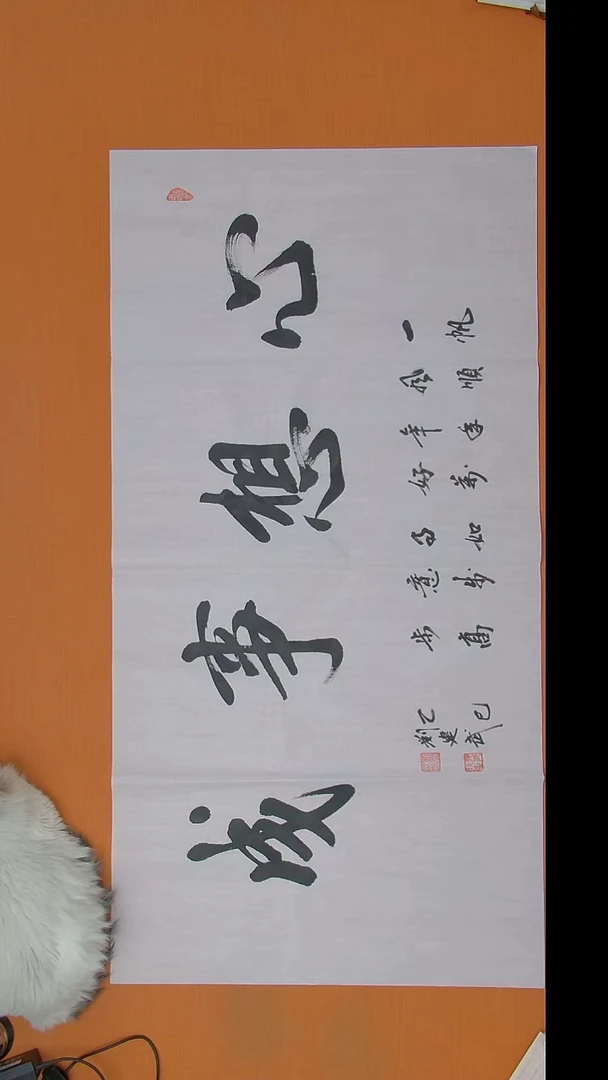 心想事成
一帆
風順
年年
好萬
事如
意步
步高
乙巳
劉建武